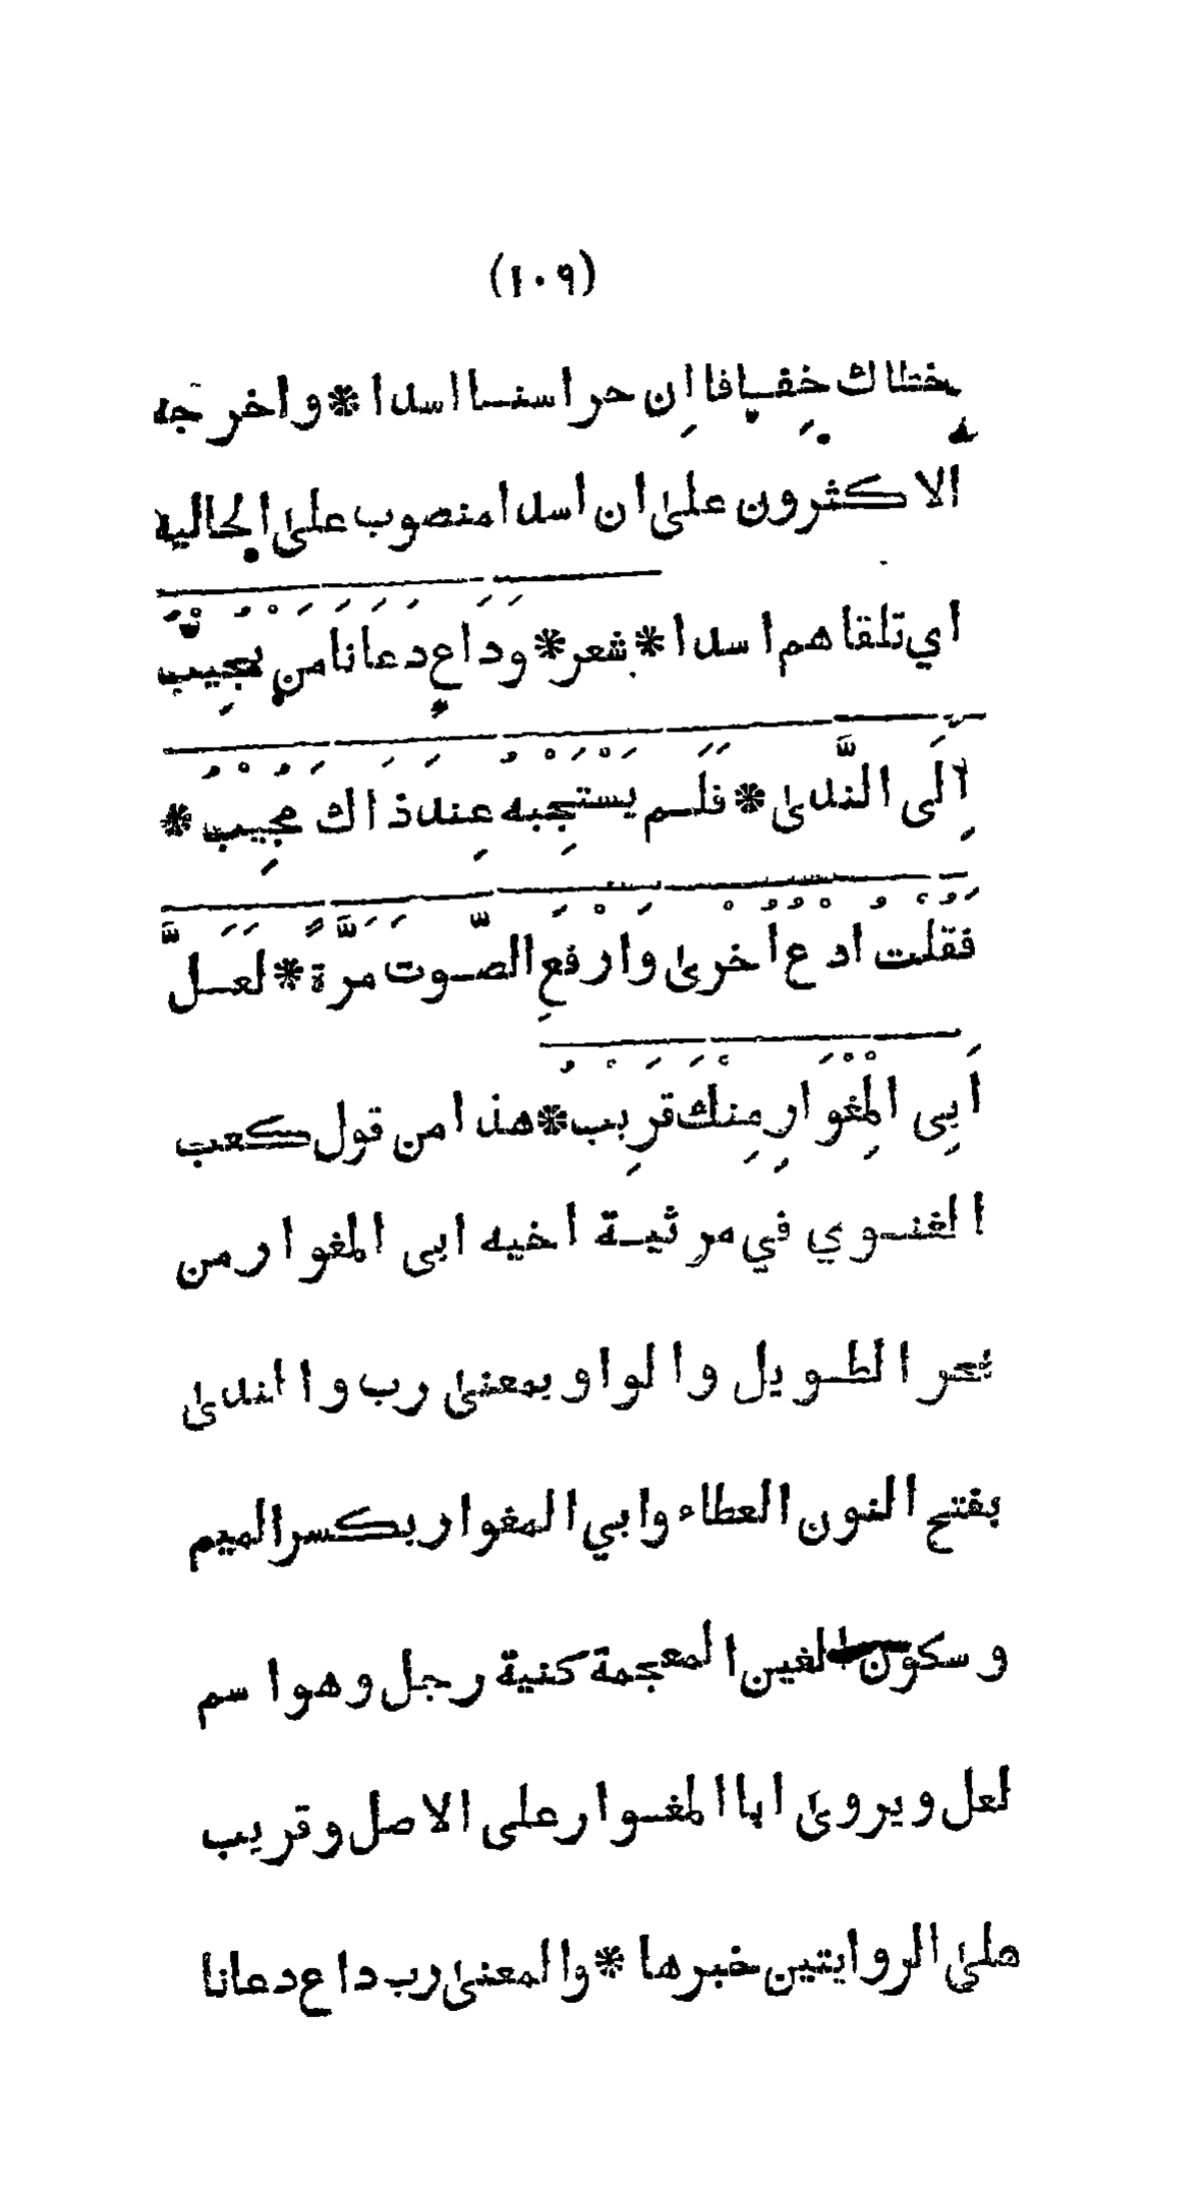 (١٠٩)
خطاك خِفافا اِن حراسنا اسدا * واخرجه
الاكثرون على ان اسدا منصوب على الحالية
اي تلقاهم اسدا * شعر * وداعٍ دعانا من يُجِيبُ
اِلَى النَّدىٰ * فَلَم يَسْتَجِبْهُ عِند ذاك مُجِيْبُ *
فَقُلْتُ ادْعُ اُخرىٰ وارْفَعِ الصَّوتَ مَرَّةً * لَعَلَّ
اَبِى الْمِغْوارِ مِنْكَ قَرِيْبُ * هذا من قول كعب
الغنوي في مرثية اخيه ابى المغوار من
بحر الطويل والواو بمعنىٰ رب والندىٰ
بفتح النون العطاء وابي المغوار بكسر الميم
وسكون الغين المعجمة كنية رجل وهو اسم
لعل ويروىٰ ابا المغوار على الاصل وقريب
علىٰ الروايتين خبرها * والمعنىٰ رب داع دعانا